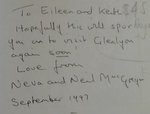 To Eileen and Keith
Hopefully this will spur
you on to visit Glenlyon
again soon
Love from
Neva and Neil MacGregor
September 1997